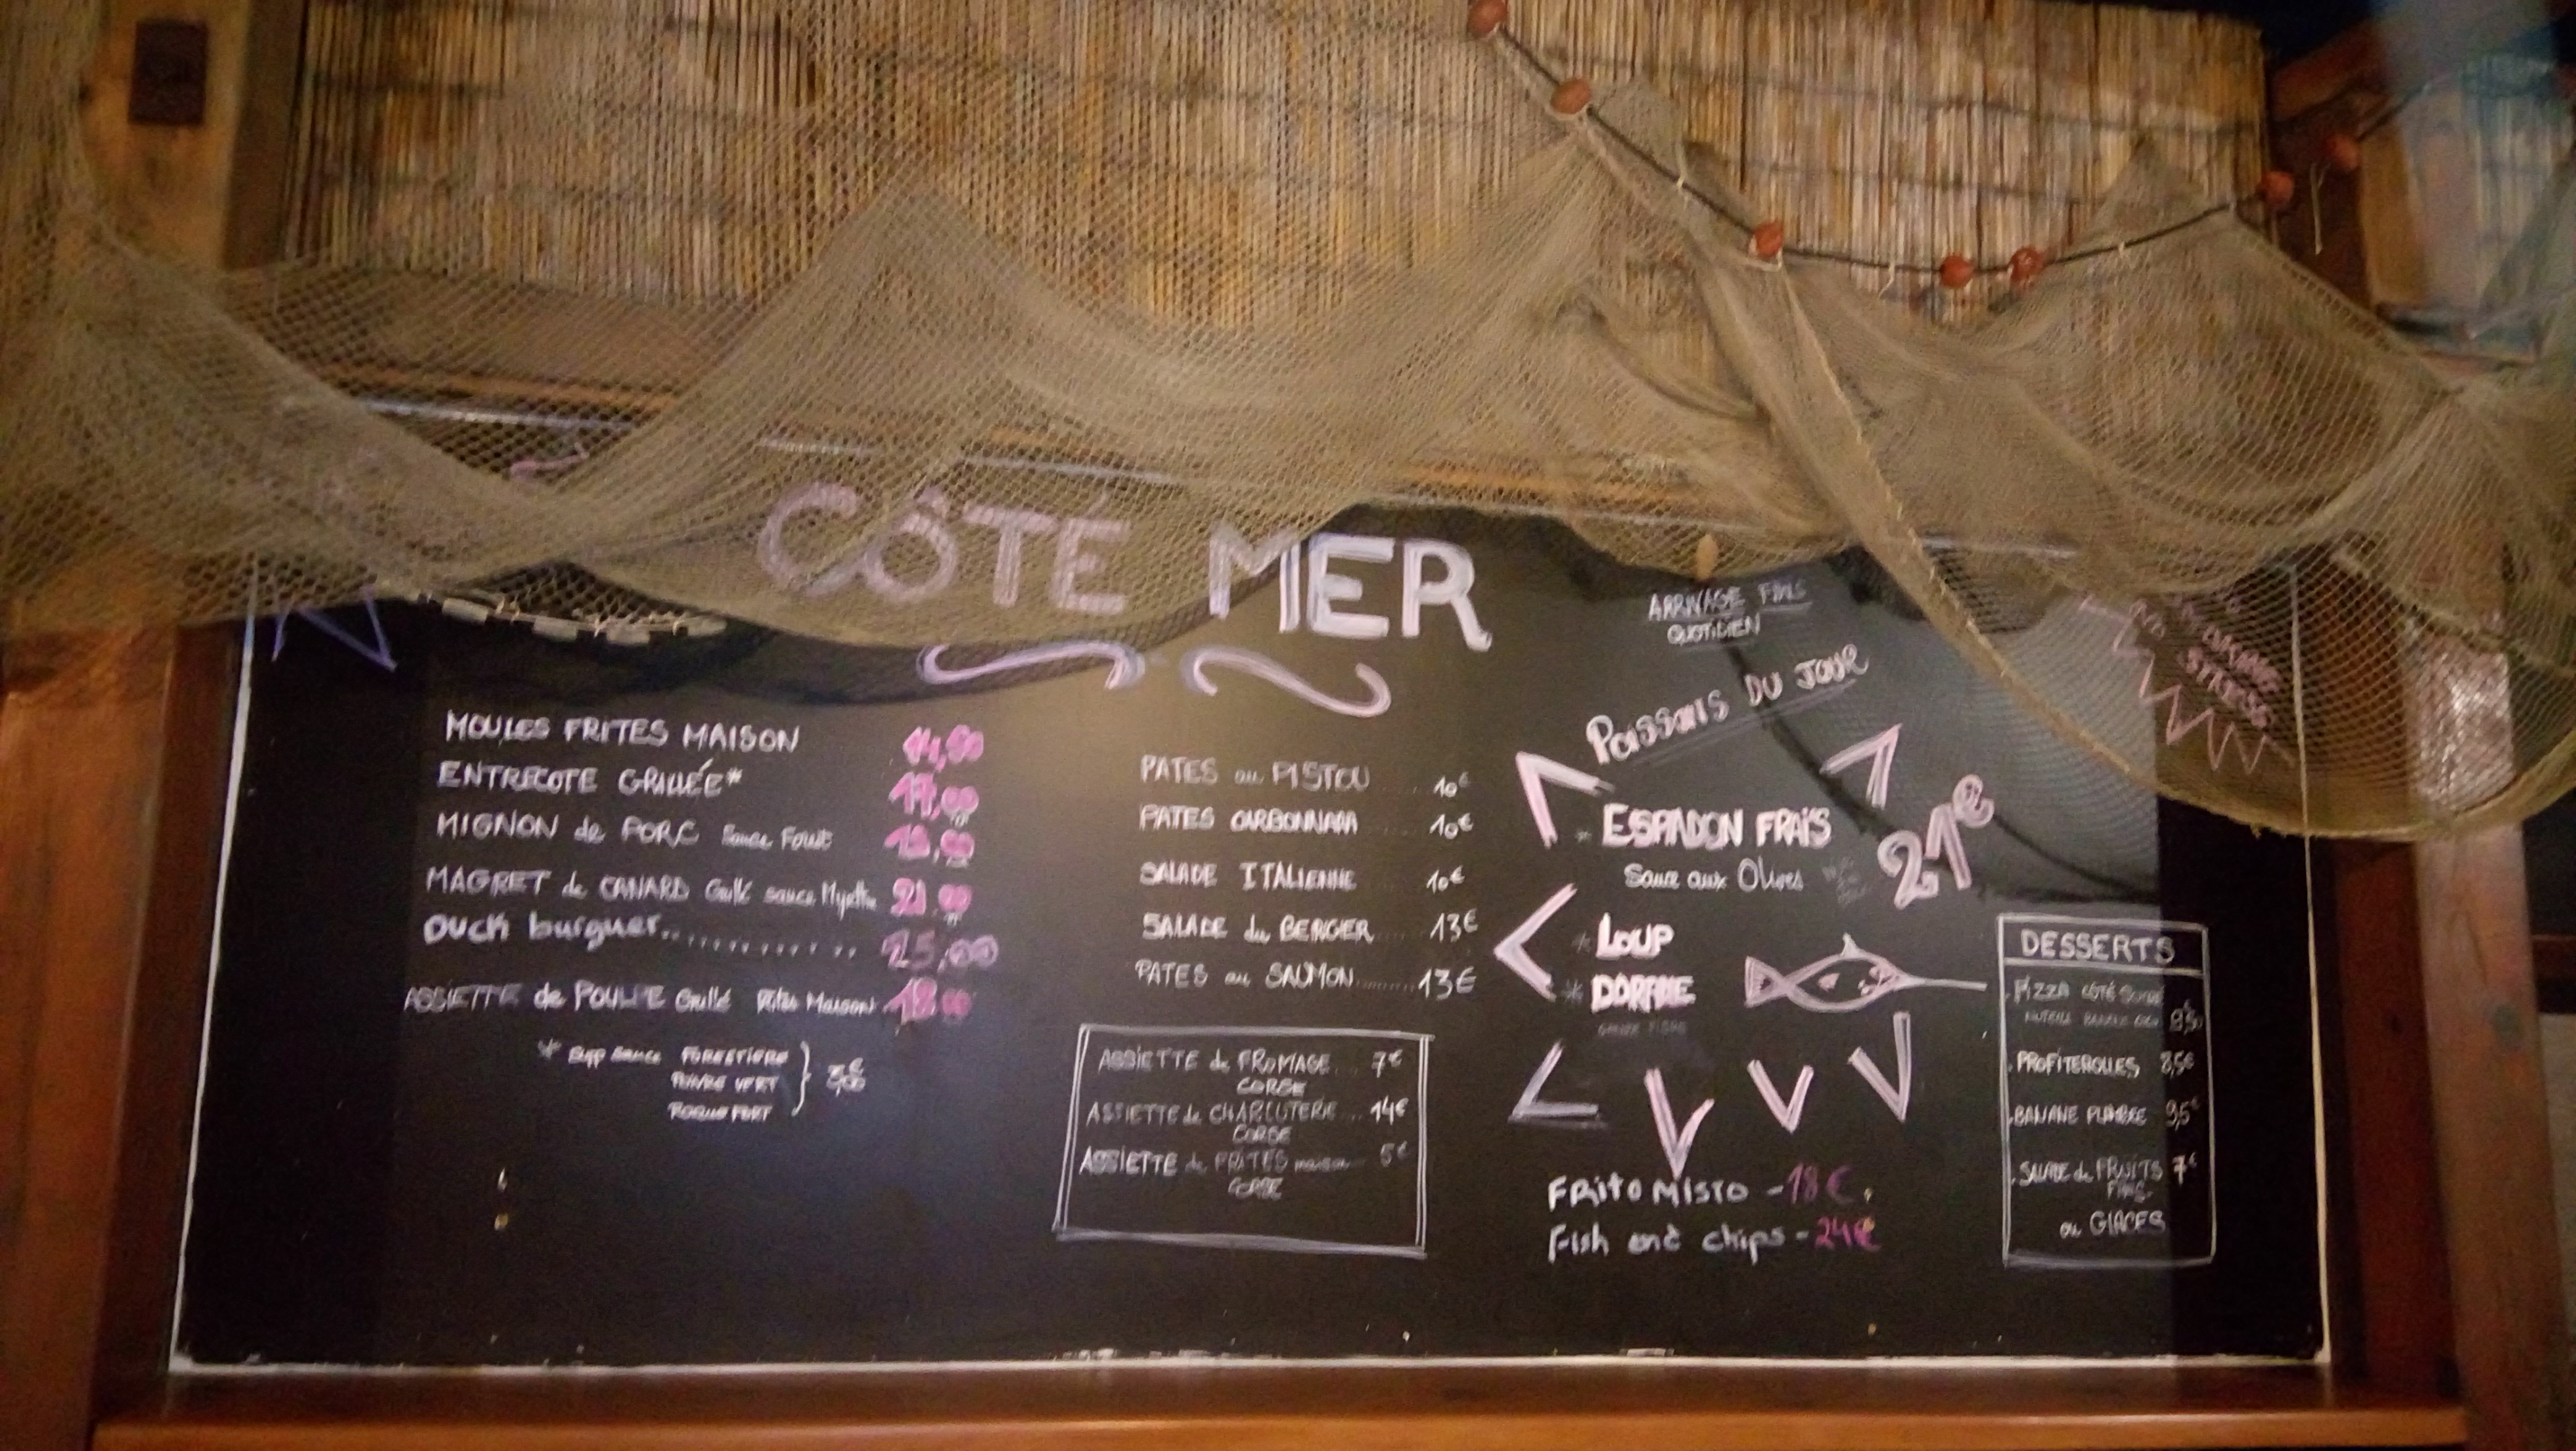 CÔTÉ MER
MOULES FRITES MAISON 14,50
ENTRECOTE GRILLÉE* 17,00
MIGNON de PORC Sauce 18,00
MAGRET de CANARD Grillé sauce 21,00
Duck burguer.............. 25,00
ASSIETTE de POULPE Grillé Frites Maison 18,00
* Supp sauce FORESTIERE
POIVRE VERT
ROQUEFORT
PATES au PISTOU ..... 10€
PATES CARBONNARA ..... 10€
SALADE ITALIENNE ..... 10€
SALADE du BERGER ..... 13€
PATES au SAUMON ......... 13€
ASSIETTE de FROMAGE ... 7€
CORSE
ASSIETTE de CHARCUTERIE ... 14€
CORSE
ASSIETTE de FRITES maison 5€
CORSE
ARRIVAGE FRAIS
QUOTIDIEN
POISSONS DU JOUR
* ESPADON FRAIS 21€
Sauce aux Olives
* LOUP
* DORADE
FRito MISTO - 18€
Fish and chips - 24€
DESSERTS
. PIZZA CÔTÉ
NUTELLA BANANE COCO 8,50
. PROFITEROLLES 8,5€
. BANANE FLAMBEE 9,5€
. SALADE de FRUITS 7€
FRAIS
ou GLACES
STICKS